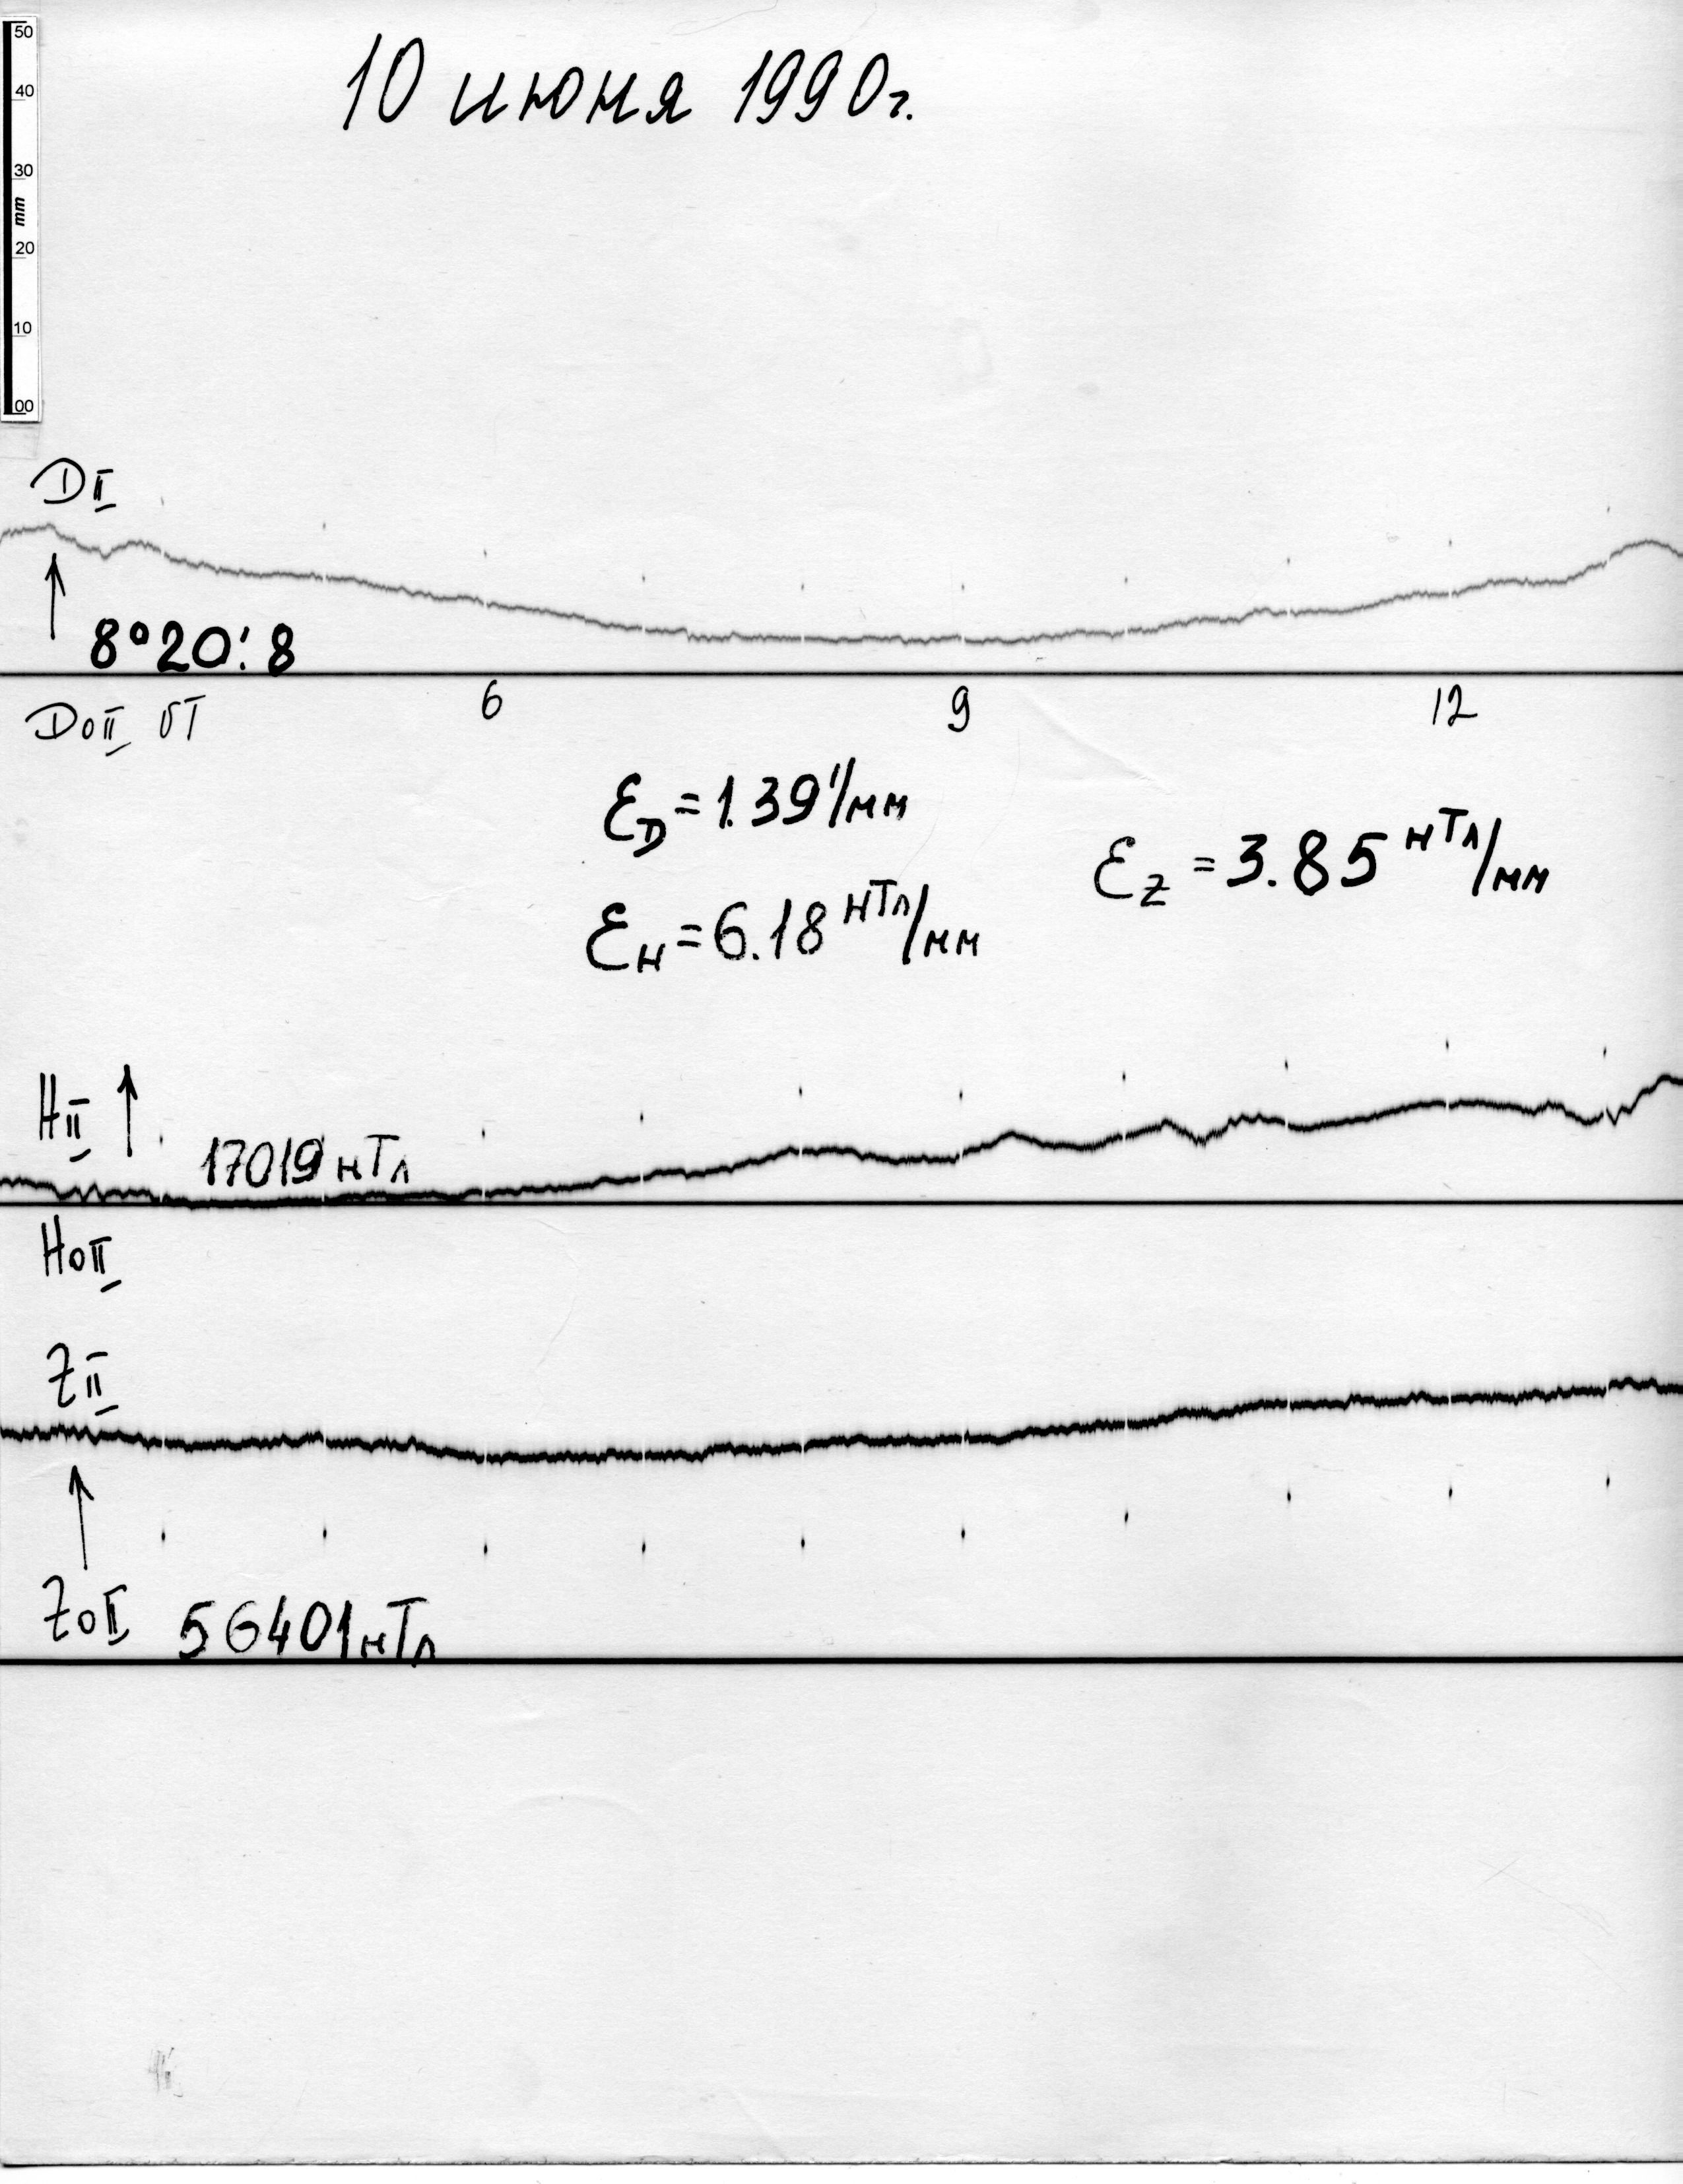 50
40
30
mm
20
10
00
10 июня 1990г.
DII
8°20!8
D0II UT
6 9 12
ℰD = 1.39'/мм
ℰZ = 3.85 нТл/мм
ℰH = 6.18 нТл/мм
HII
17019 нТл
H0II
ZII
Z0II 56401 нТл